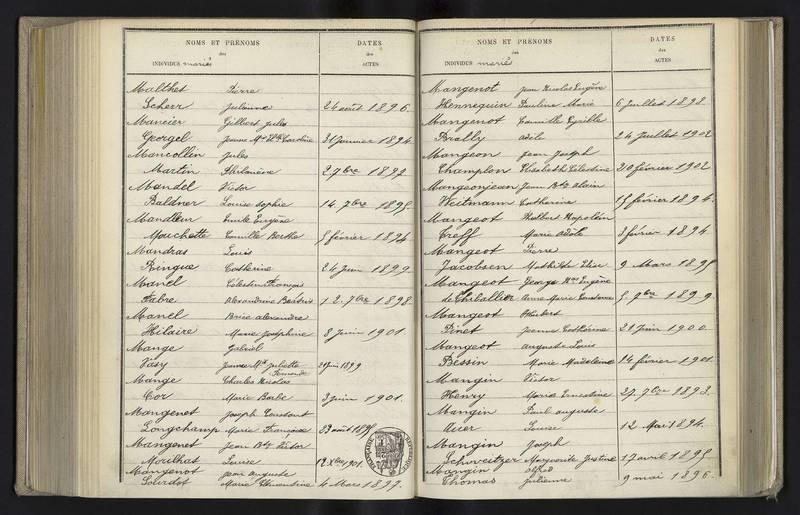 NOMS ET PRÉNOMS
des
INDIVIDUS mariés
DATES
des
ACTES
Malthet Pierre
Scheer Julienne 24 août 1896.
Mancier Gilbert Jules
Georgel Jeanne Caroline 31 janvier 1894.
Mancollin Jules
Martin 2 7bre 1892
Mandel Victor
Baldner Louise Sophie 14 7bre 1895.
Mandleur Emile Eugène
Mouchette Camille Berthe 5 février 1894
Mandras Louis
Ringue Catherine 24 Juin 1899
Manel Célestin François
Fabre Alexandrine 12. 7bre 1898.
Manel Brice Alexandre
Hilaire Marie Joséphine 8 Juin 1901.
Mange Gabriel
Vasy Jeanne Mie Juliette 1899
Mange Charles Nicolas
Cor Marie Barbe 3 Juin 1901.
Mangenet Joseph Constant
Longchamp Marie Françoise 23 août 1895
Mangenet Jean Bte Victor
Mouilhat Louise Xbre 1901.
Mangenot Jean Auguste
Sourdot Marie 4 Mars 1897.
NOMS ET PRÉNOMS
des
INDIVIDUS mariés
DATES
des
ACTES
Mangenot Jean Nicolas Eugène
Hennequin Pauline Marie 6 Juillet 1898
Mangenot Camille Cyrille
Brally Adèle 24 Juillet 1902
Mangeon Jean Joseph
Champlon Elisabeth Célestine 20 février 1902
Mangeonjean Jean Bte Alain
Weitmann Catherine 17 février 1894.
Mangeot Napoléon
Treff Marie Adèle 3 février 1894
Mangeot Pierre
Jacobsen Mathilde Elise 9 Mars 1895
Mangeot George Eugène
de Thiballier Anne Marie 5. 9bre 1899
Mangeot Hubert
Pinet Jeanne Catherine 21 Juin 1900.
Mangeot Auguste Louis
Bessin Marie Madeleine 14 février 1901.
Mangin Victor
Henry Marie Ernestine 27. 7bre 1893.
Mangin Paul Auguste
Louise 12 1894.
Mangin Joseph
Schweitzer Marguerite Justine 17 avril 1895
Mangin Alfred
Thomas Julienne 9 mai 1896.